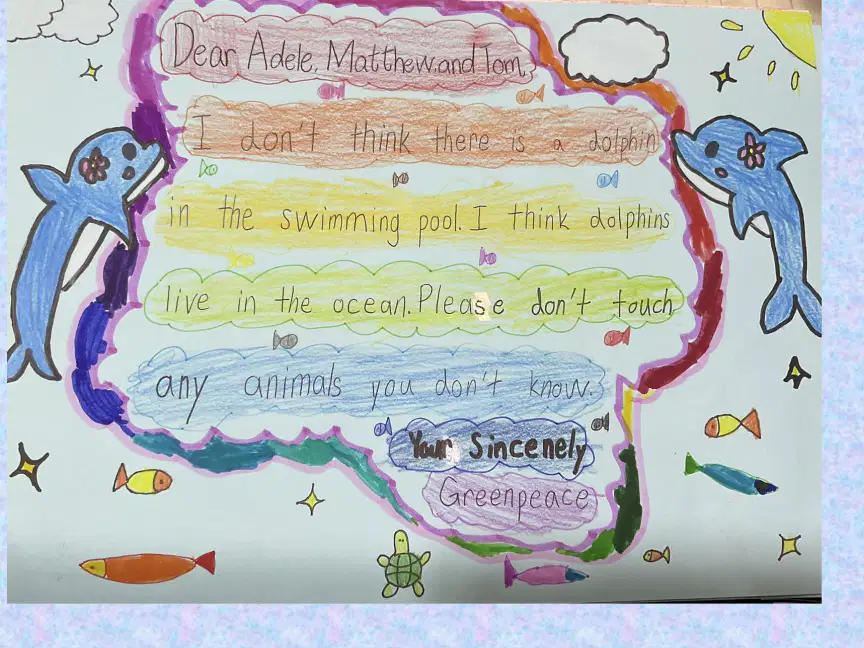 Dear Adele, Matthew and Tom,
I don't think there is a dolphin
in the swimming pool. I think dolphins
live in the ocean. Please don't touch
any animals you don't know.
Your Sincenely
Greenpeace